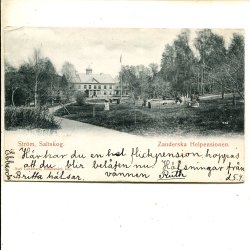 Ström, Saltskog. Zanderska Helpensionen.
Härkar du en hel flickpension, hoppas
att du blir belåten nu Hälsningar från
Britta hälsar. vännen Ruth